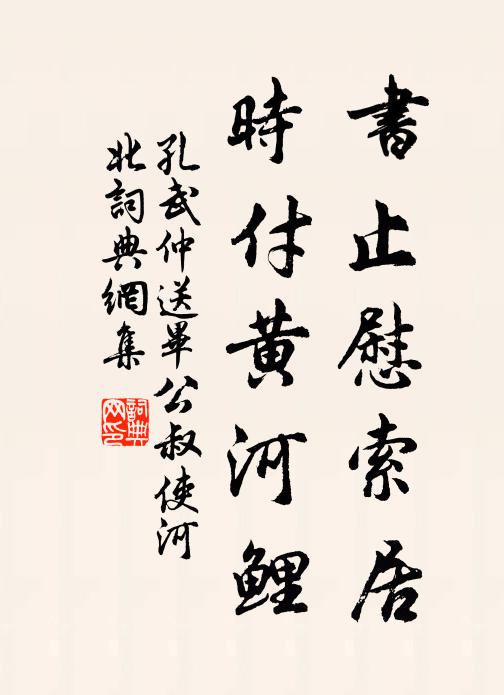 書止慰索居
時付黃河鯉
孔武仲送畢公叔使河
北詞典網集
詞典
网印